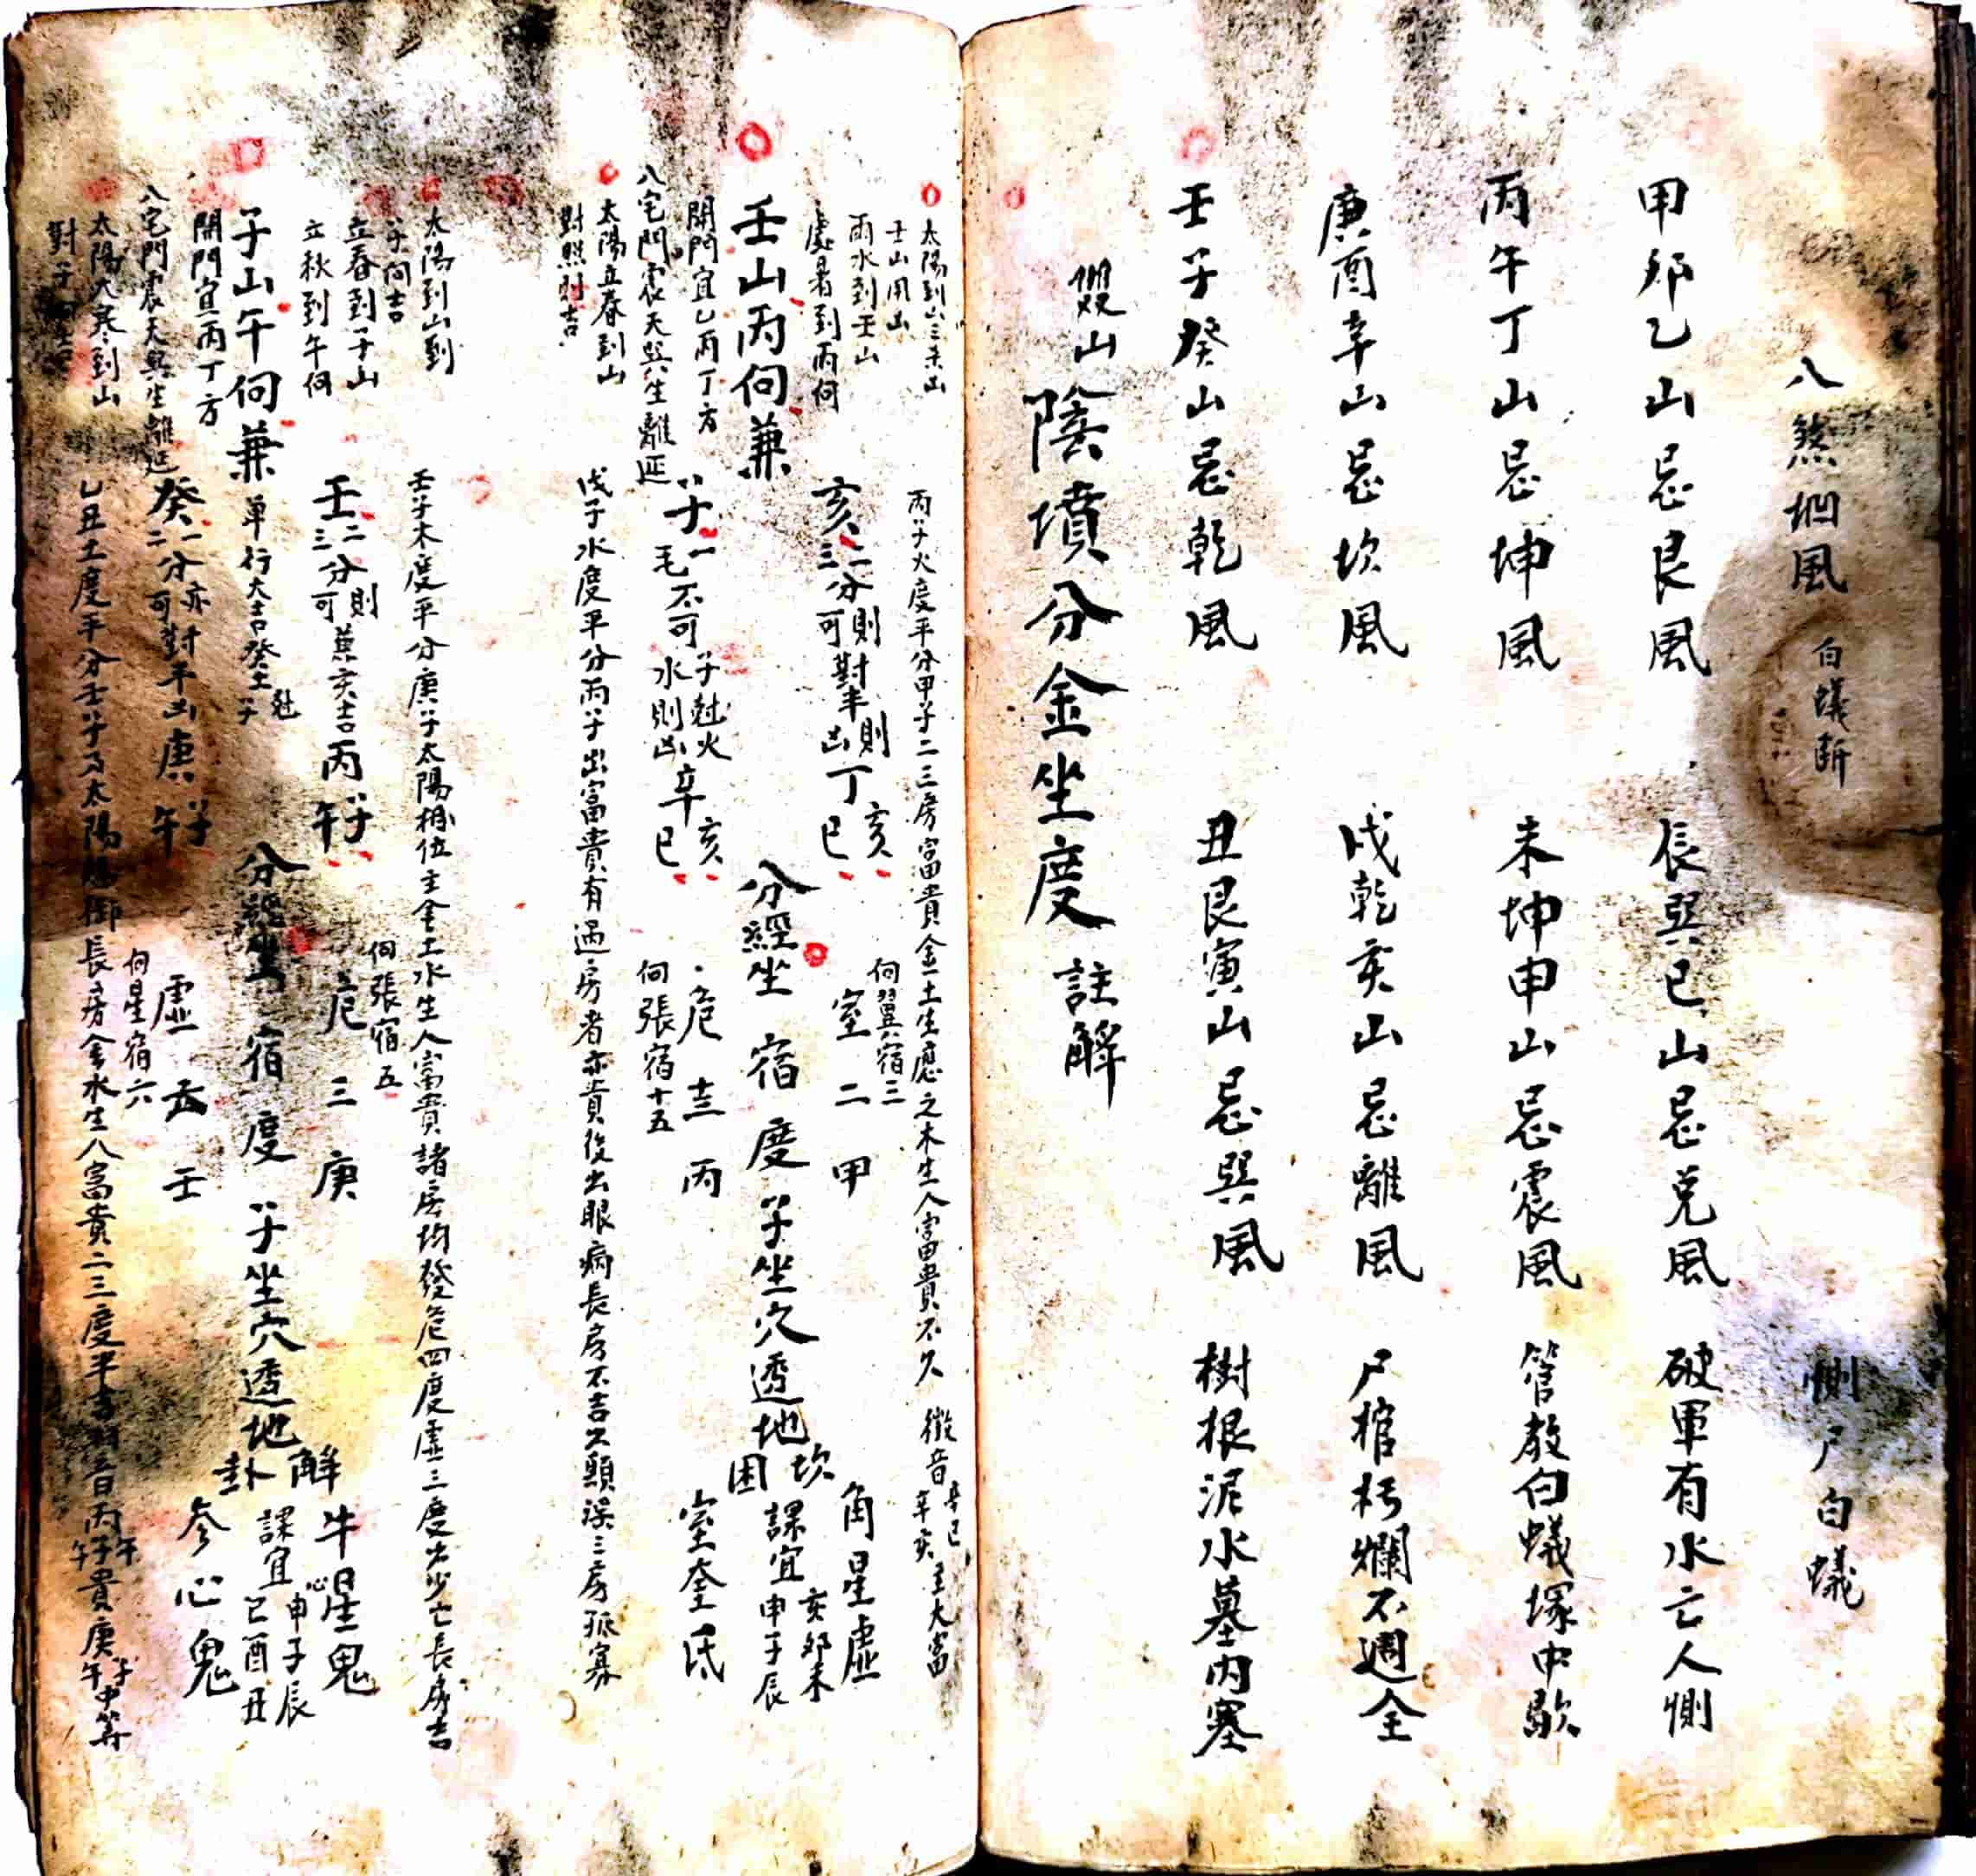 八煞忚風 白蟻斷 惻尸白蟻
甲卯乙山忌艮風 辰巽巳山忌兌風 破軍有水亡人惻
丙午丁山忌坤風 未坤申山忌震風 管教白蟻塚中歇
庚酉辛山忌坎風 戌乾亥山忌離風 尸棺朽爛不週全
壬子癸山忌乾風 丑艮寅山忌巽風 樹根泥水墓内塞
山陰墳分金坐度註解
太陽到山三未山
壬山用山
雨水到壬山
處暑到丙向
丙子火度平分甲子二三房富貴金土生應之木生人富貴不久 徵音 辛巳 辛亥 主大富
亥一二三分則可對半則凶 丁亥 丁巳 向翼宿三 室二甲 角星虛
壬山丙向兼 分經坐宿度子坐穴透地坎困 課宜 亥卯未 申子辰
開門宜乙丙丁方
八宅門震天巽生離延
子一毛不可 子尅火 水則凶 辛亥 辛巳 危十三丙 向張宿十五 室奎氐
太陽立春到山
對照時吉
戊子水度平分丙子出富貴有過房者亦貴後出眼病長房不吉久顯誤三房孤寡
太陽到山到
子向吉
立春到子山
立秋到午向
壬子木度平分庚子太陽相位主金土水生人富貴諸房均發危四度虛三度少亡長房吉
壬二三分則可兼亥吉 丙子 丙午 向張宿五 危三庚 牛星鬼
子山午向兼 單行大吉 分經坐宿度子坐穴透地解卦 課宜 申子辰 巳酉丑
開門宜丙丁方
八宅門震天巽生離延
癸一二分亦可對半凶 庚子 庚午 向星宿六 虛五壬 参心鬼
太陽大寒到山
對子
乙丑土度平分壬子太陽 長房金水生人富貴二三度半 音丙子 丙午貴庚子 庚午中等